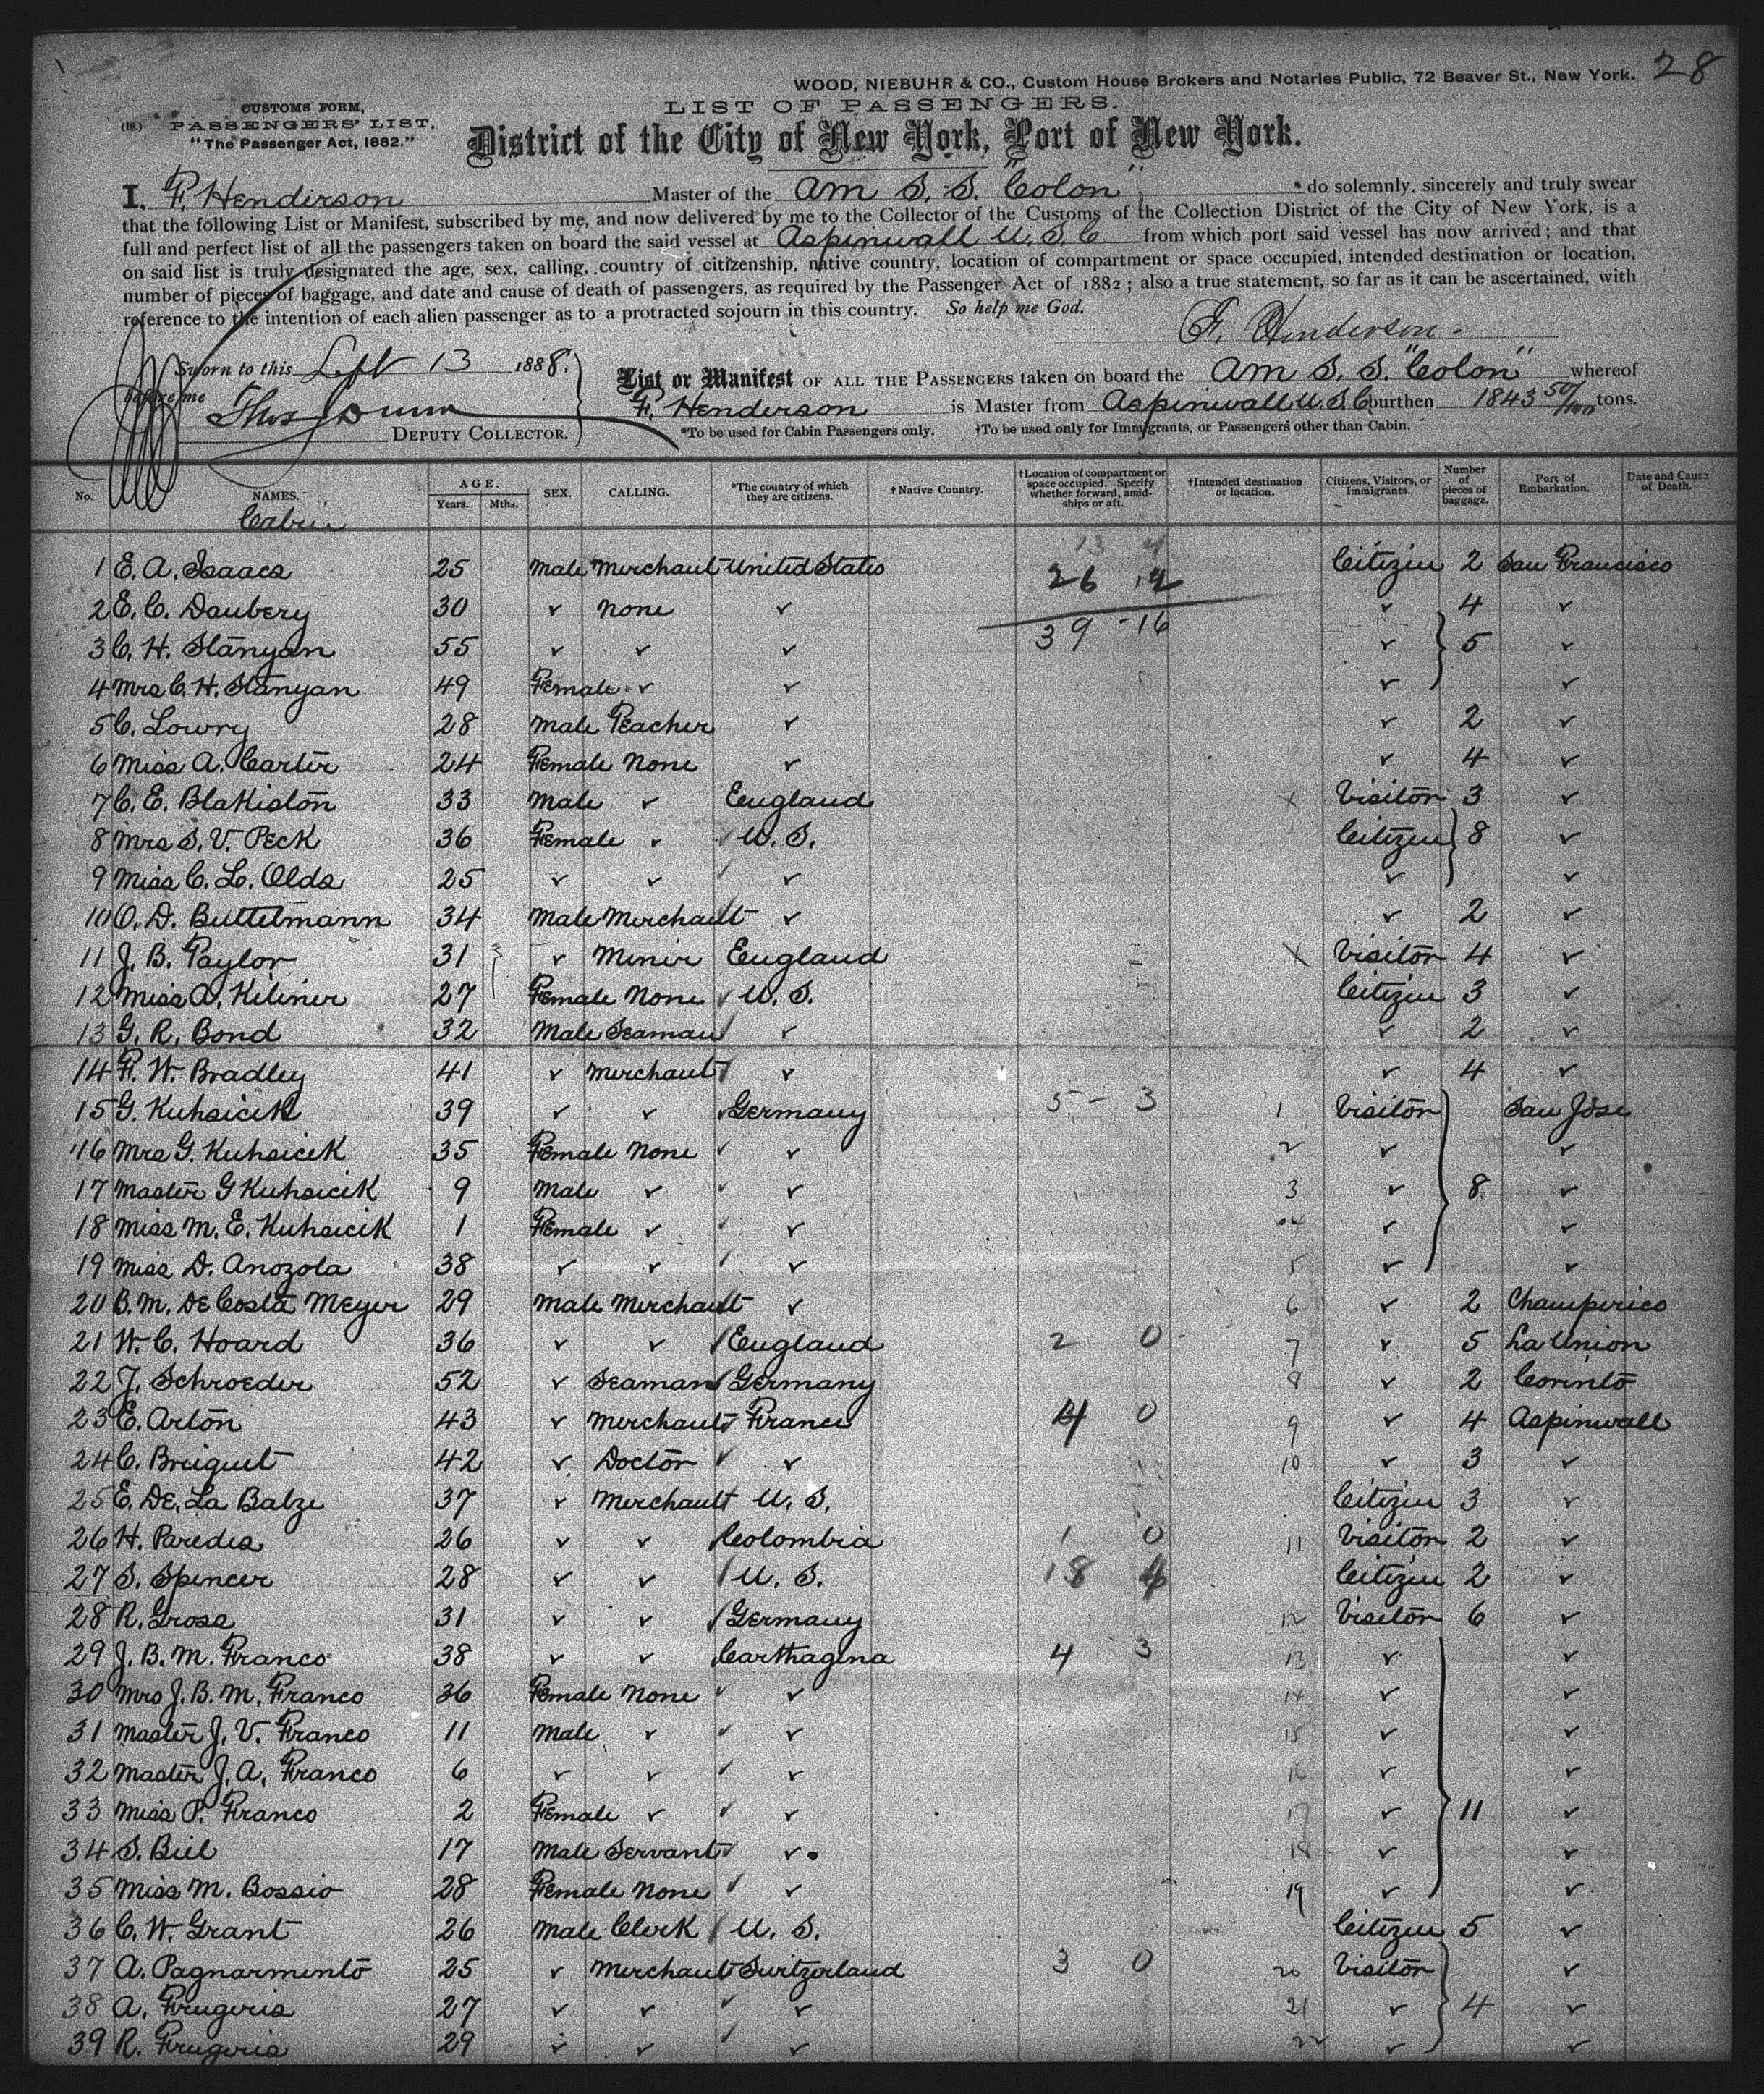 28
WOOD, NIEBUHR & CO., Custom House Brokers and Notaries Public, 72 Beaver St., New York.
CUSTOMS FORM,
(18.) PASSENGERS' LIST.
"The Passenger Act, 1882."
LIST OF PASSENGERS.
District of the City of New York, Port of New York.
I, F. Henderson Master of the Am S. S. "Colon" do solemnly, sincerely and truly swear
that the following List or Manifest, subscribed by me, and now delivered by me to the Collector of the Customs of the Collection District of the City of New York, is a
full and perfect list of all the passengers taken on board the said vessel at Aspinwall U. S. C from which port said vessel has now arrived; and that
on said list is truly designated the age, sex, calling, country of citizenship, native country, location of compartment or space occupied, intended destination or location,
number of pieces of baggage, and date and cause of death of passengers, as required by the Passenger Act of 1882; also a true statement, so far as it can be ascertained, with
reference to the intention of each alien passenger as to a protracted sojourn in this country. So help me God.
F. Henderson.
Sworn to this Sept 13 1888.
before me Thos J Dunn
DEPUTY COLLECTOR.
List or Manifest OF ALL THE PASSENGERS taken on board the Am S. S. "Colon" whereof
F. Henderson is Master from Aspinwall U. S. C burthen 1843 50/100 tons.
*To be used for Cabin Passengers only. †To be used only for Immigrants, or Passengers other than Cabin.
No. NAMES. AGE. Years. Mths. SEX. CALLING. *The country of which they are citizens. †Native Country. †Location of compartment or space occupied. Specify whether forward, amidships or aft. †Intended destination or location. Citizens, Visitors, or Immigrants. Number of pieces of baggage. Port of Embarkation. Date and Cause of Death.
Cabin
13 4
1 E. A. Isaacs 25 Male Merchant United States 26 12 Citizen 2 San Francisco
2 E. C. Daubery 30 ✓ None ✓ ✓ 4 ✓
39 - 16
3 C. H. Stanyan 55 ✓ ✓ ✓ ✓ 5 ✓
4 Mrs C. H. Stanyan 49 Female ✓ ✓ ✓ ✓
5 C. Lowry 28 Male Teacher ✓ ✓ 2 ✓
6 Miss A. Carter 24 Female None ✓ ✓ 4 ✓
7 C. E. Blakiston 33 Male ✓ England x Visitor 3 ✓
8 Mrs S. V. Peck 36 Female ✓ U. S. Citizen 8 ✓
9 Miss C. L. Olds 25 ✓ ✓ ✓ ✓ ✓
10 O. D. Buttelmann 34 Male Merchant ✓ ✓ 2 ✓
11 J. B. Taylor 31 ✓ Miner England x Visitor 4 ✓
12 Miss A. Kiliner 27 Female None U. S. Citizen 3 ✓
13 G. R. Bond 32 Male Seaman ✓ ✓ 2 ✓
14 F. W. Bradley 41 ✓ Merchant ✓ ✓ 4 ✓
15 G. Kuhsicik 39 ✓ ✓ Germany 5 - 3 1 Visitor San Jose
16 Mrs G. Kuhsicik 35 Female None ✓ 2 ✓ ✓
17 Master G Kuhsicik 9 Male ✓ ✓ 3 ✓ 8 ✓
18 Miss M. E. Kuhsicik 1 Female ✓ ✓ 4 ✓ ✓
19 Miss D. Anozola 38 ✓ ✓ ✓ 5 ✓ ✓
20 B. M. De Costa Meyer 29 Male Merchant ✓ 6 ✓ 2 Champerico
21 W. C. Hoard 36 ✓ ✓ England 2 0 7 ✓ 5 La Union
22 J. Schroeder 52 ✓ Seaman Germany 8 ✓ 2 Corinto
23 E. Arton 43 ✓ Merchant France 4 0 9 ✓ 4 Aspinwall
24 C. Briquet 42 ✓ Doctor ✓ 10 ✓ 3 ✓
25 E. De La Balze 37 ✓ Merchant U. S. Citizen 3 ✓
26 H. Paredes 26 ✓ ✓ Colombia 1 0 11 Visitor 2 ✓
27 S. Spencer 28 ✓ ✓ U. S. 18 4 Citizen 2 ✓
28 R. Gross 31 ✓ ✓ Germany 12 Visitor 6 ✓
29 J. B. M. Franco 38 ✓ ✓ Carthagena 4 3 13 ✓ ✓
30 Mrs J. B. M. Franco 36 Female None ✓ 14 ✓ ✓
31 Master J. V. Franco 11 Male ✓ ✓ 15 ✓ ✓
32 Master J. A. Franco 6 ✓ ✓ ✓ 16 ✓ ✓
33 Miss P. Franco 2 Female ✓ ✓ 17 ✓ 11 ✓
34 S. Biel 17 Male Servant ✓ 18 ✓ ✓
35 Miss M. Bossio 28 Female None ✓ 19 ✓ ✓
36 C. W. Grant 26 Male Clerk U. S. Citizen 5 ✓
37 A. Pagnarmento 25 ✓ Merchant Switzerland 3 0 20 Visitor ✓
38 A. Frugeris 27 ✓ ✓ ✓ 21 ✓ 4 ✓
39 R. Frugeris 29 ✓ ✓ ✓ 22 ✓ ✓